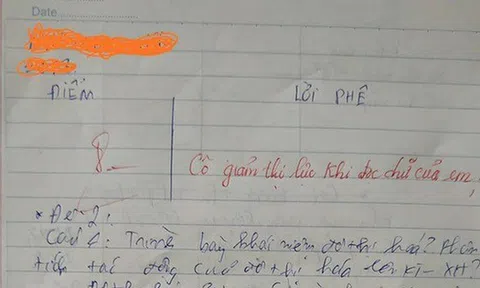 Date
ĐIỂM LỜI PHÊ
8
Cô giảm thị lực khi đọc chữ của em
* Đề 2:
Câu 1: Trình bày khái niệm đô thị hoá? Phân
tích tác động của đô thị hóa đến KT-XH?